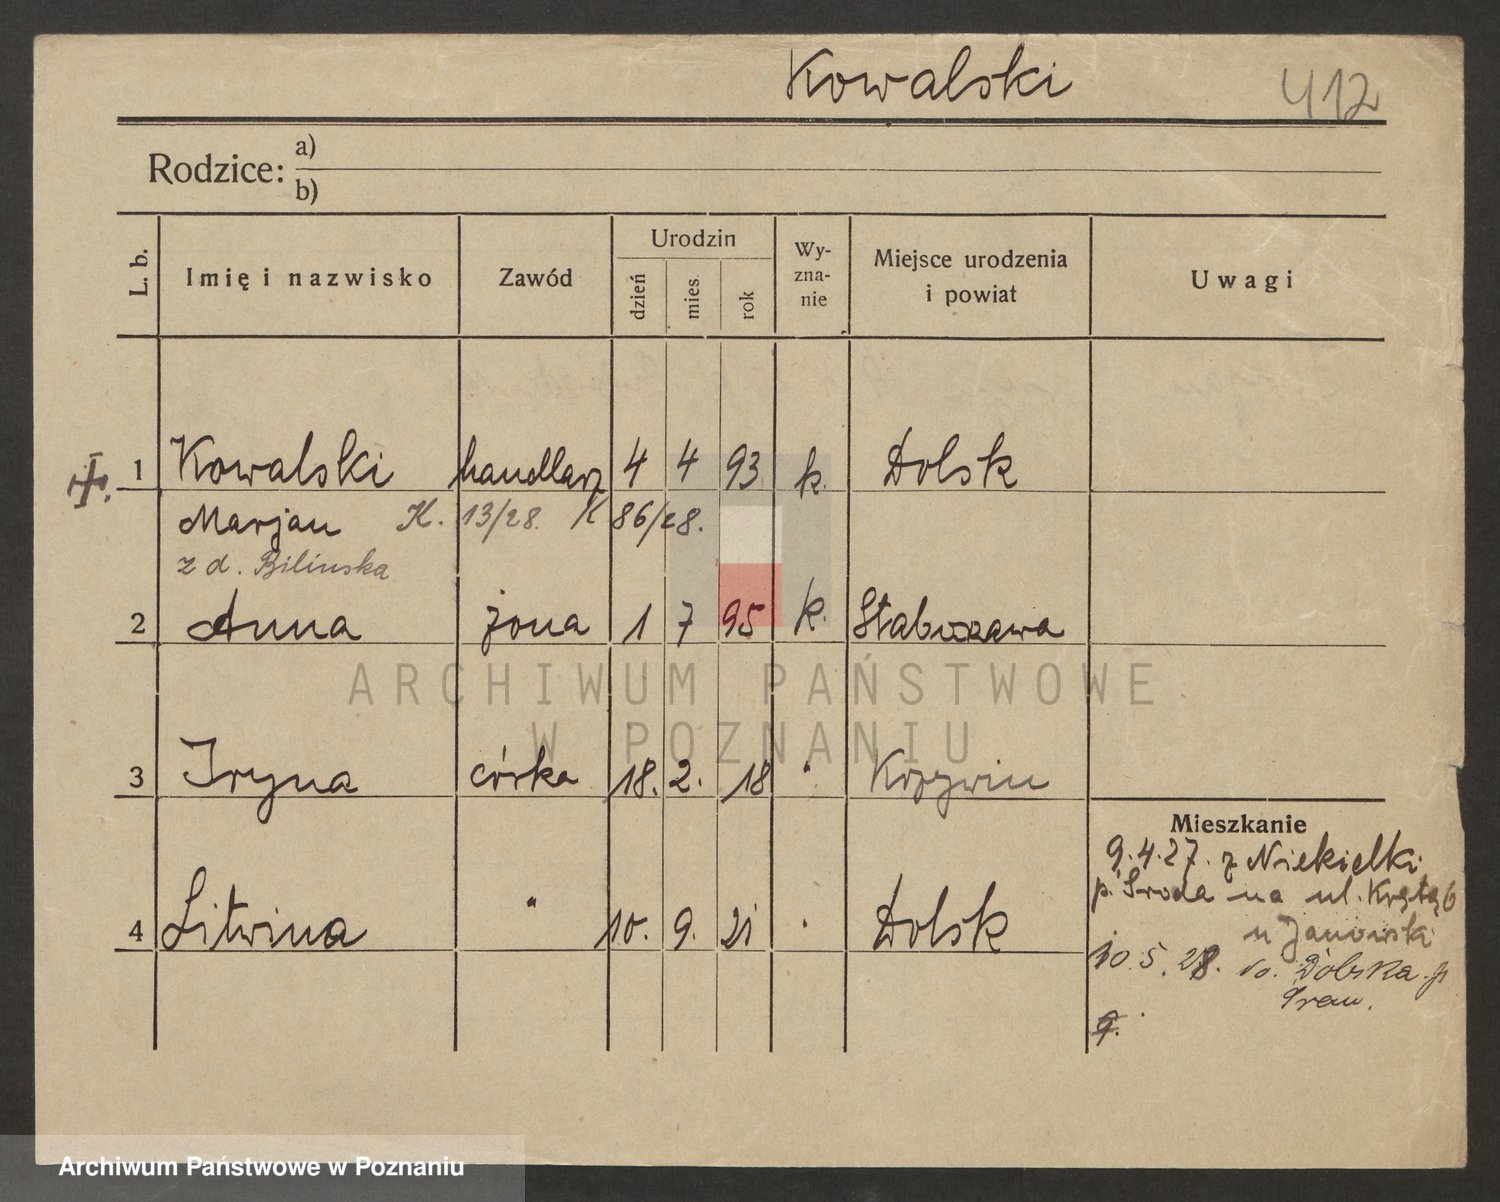 Kowalski 412
Rodzice: a)
b)
L. b. Imię i nazwisko Zawód Urodzin dzień mies. rok Wy-zna-nie Miejsce urodzenia i powiat Uwagi
1 Kowalski handlarz 4 4 93 k. Dolsk
Marjan K. 13/28. K 86/28.
z d. Bilinska
2 Anna żona 1 7 95 k.
3 Iryna córka 18. 2. 18 " Krzywin
4 Litwina " 10. 9. 21 " Dolsk
Mieszkanie
9.4.27. z Niekielki
p. Sroda na ul. Krętą 6
u Janowska
10.5.28. do Dolska p
Srem.
9.
ARCHIWUM PAŃSTWOWE
W POZNANIU
Archiwum Państwowe w Poznaniu